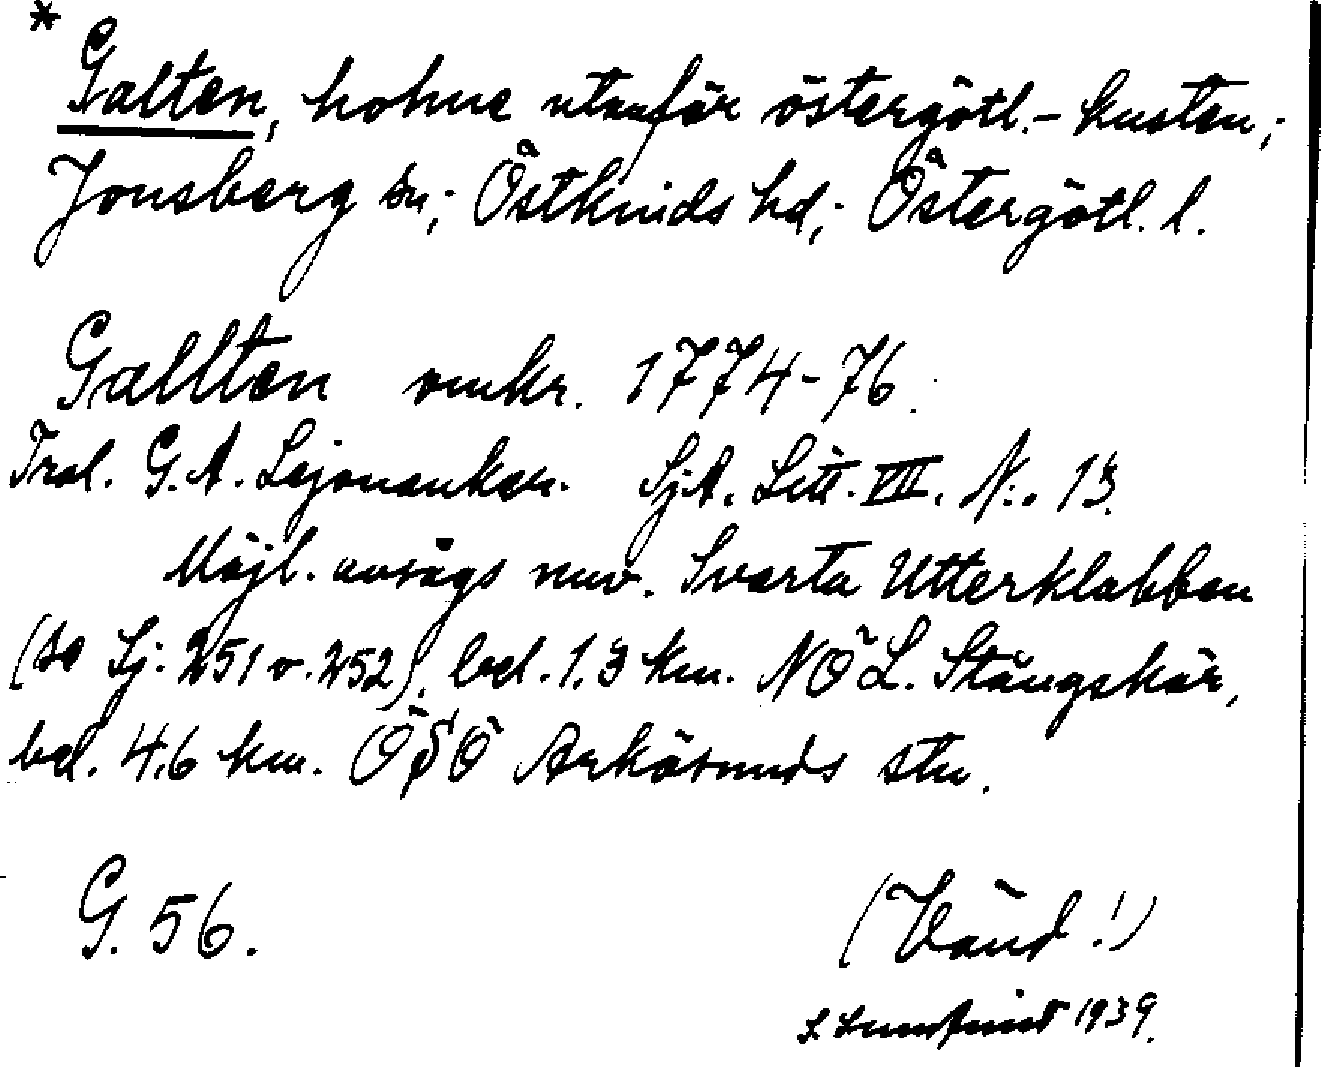 *
Galten, holme utanför östergötl.-kusten;
Jonsberg sn; Östkinds hd; Östergötl. l.
Gallten omkr. 1774-76.
Trol. G.A. Lejonanker. SjA. Litt. VII. N:o 13.
Möjl. avsågs nuv. Svarta Utterklabben
(se Sj. 251 o. 252), bel. 1.3 km. NÖ L. Stångskär,
bel. 4.6 km. ÖSÖ Arkösunds stn.
G. 56.
(Vänd!)
S Lundqvist 1939.